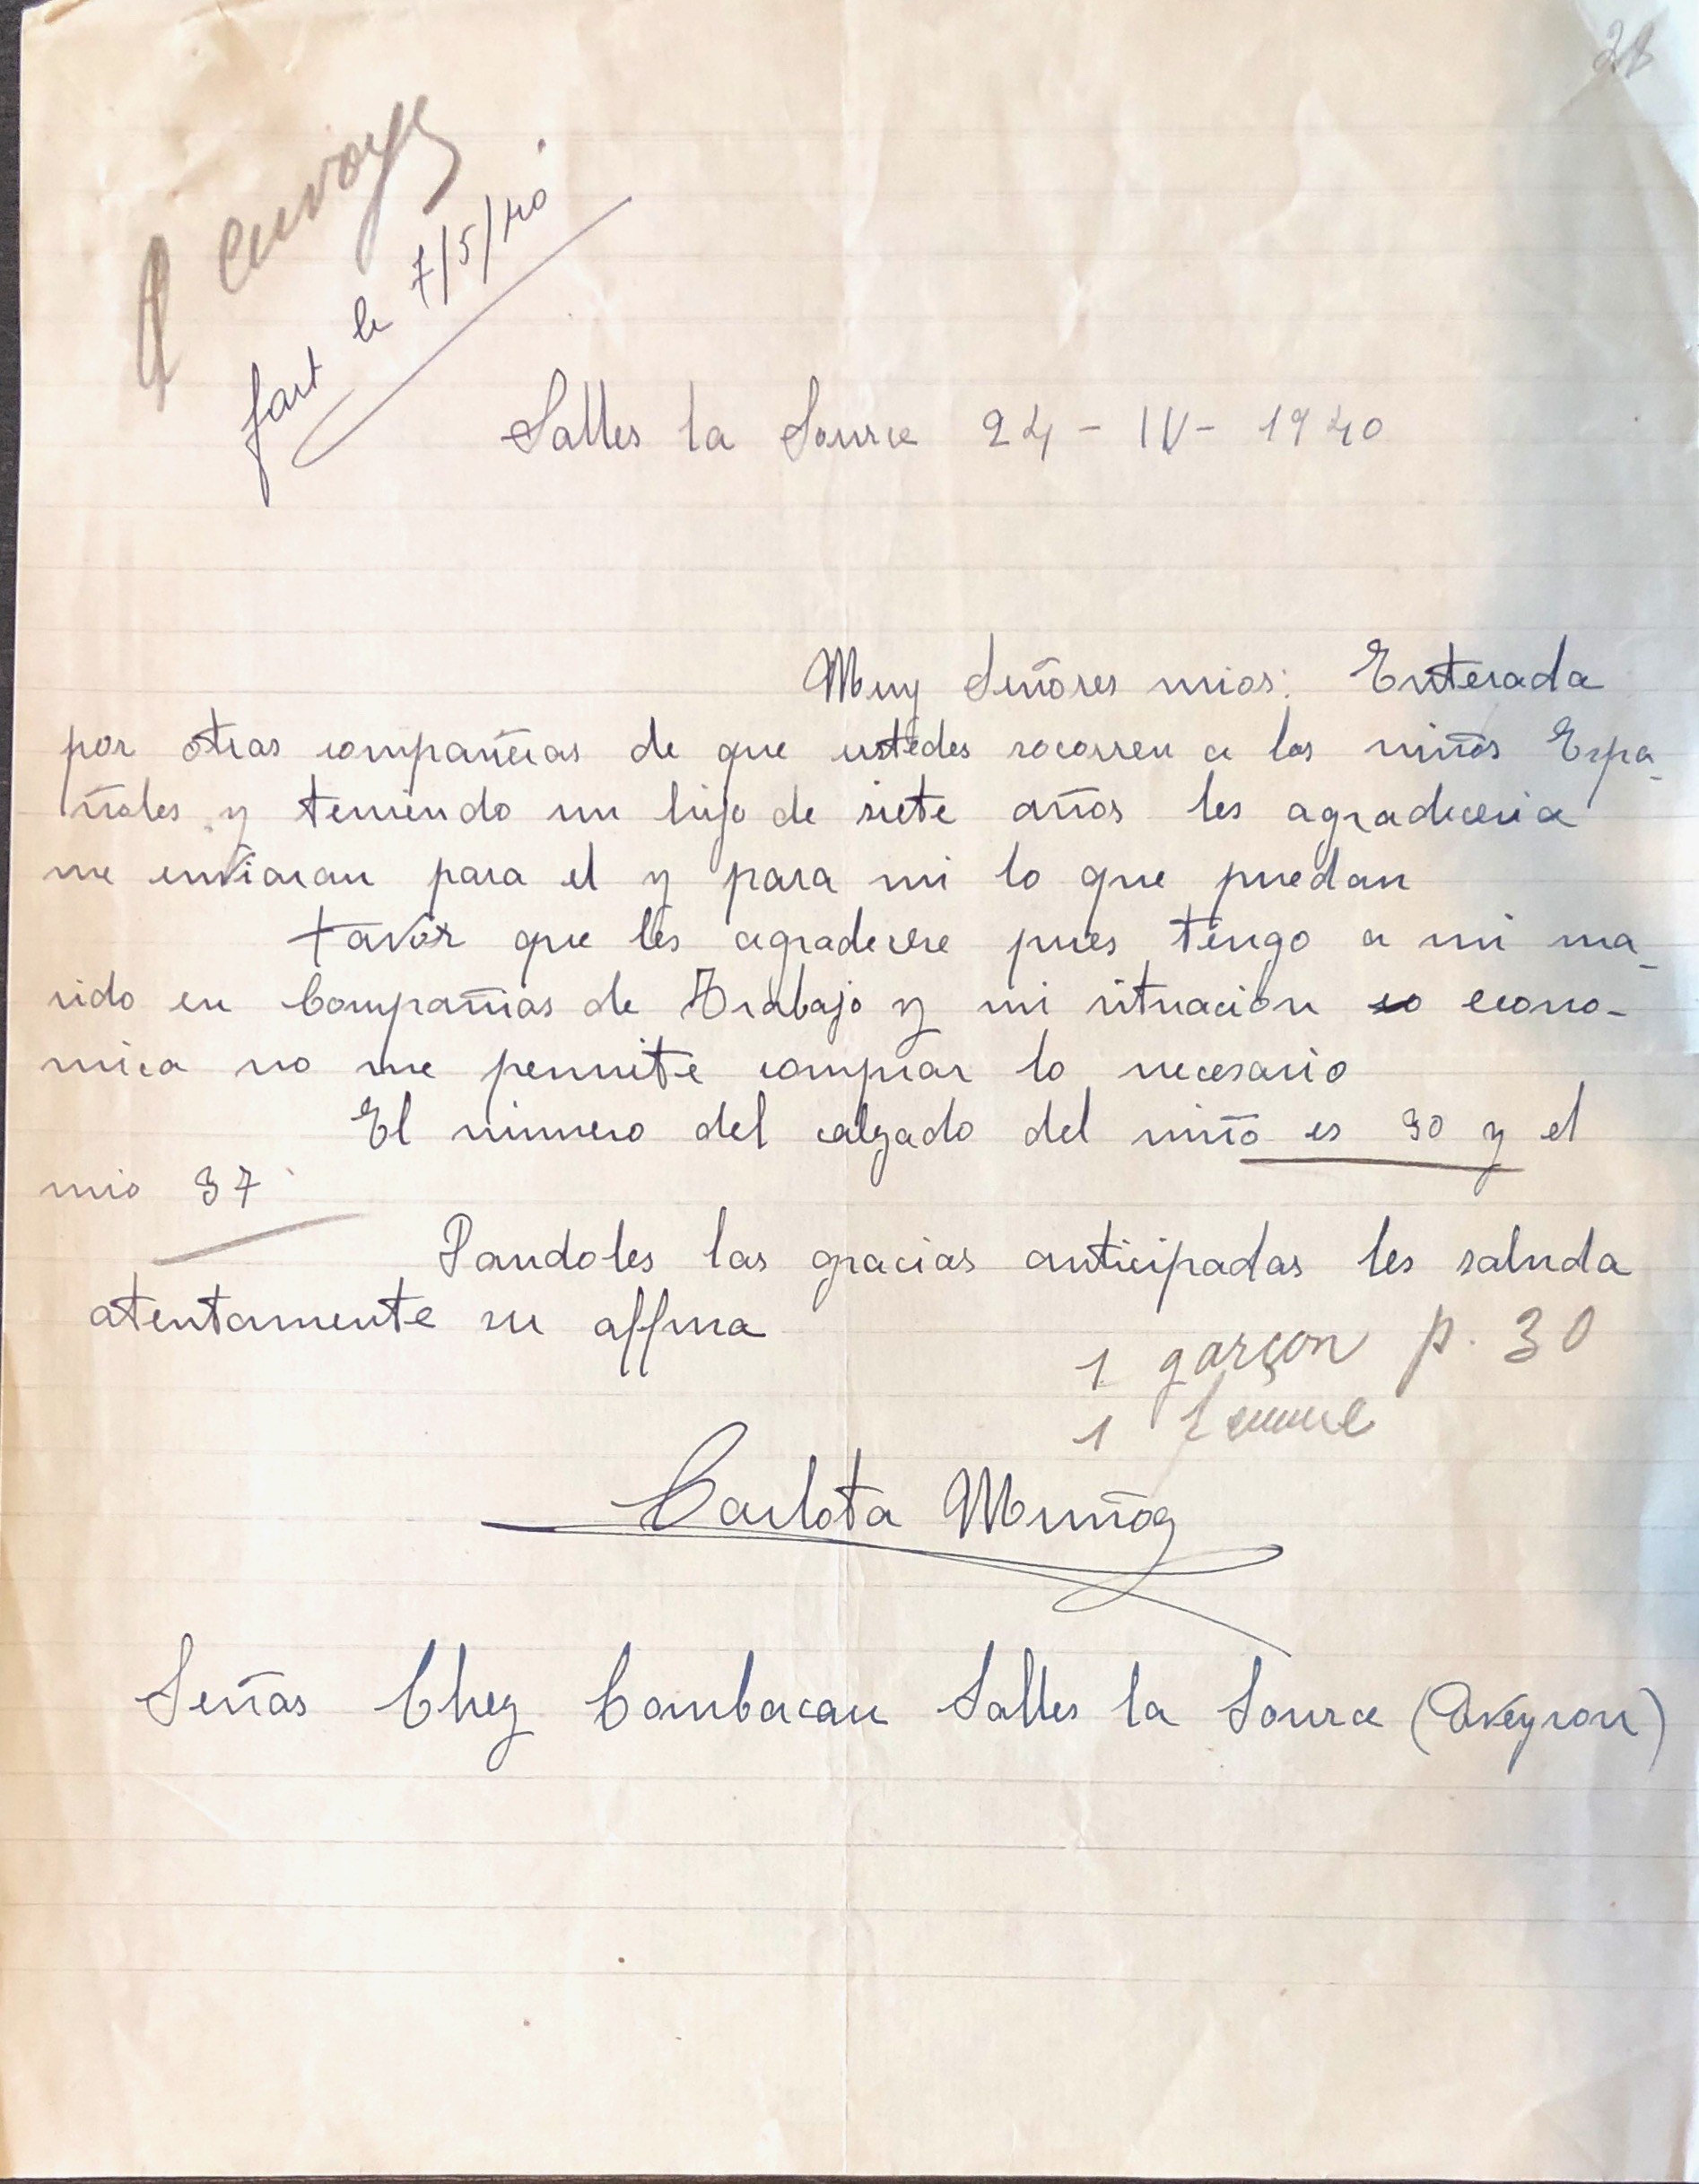 A envoyer
fait le 7/5/40
Salles la Source 24 - IV - 1940
Muy Señores mios: Enterada
por otras compañeras de que ustedes socorren a los niños Espa-
ñoles y teniendo un hijo de siete años les agradeceria
me enviaran para el y para mi lo que puedan
favor que les agradecere pues tengo a mi ma-
rido en Compañias de Trabajo y mi situacion econo-
mica no me permite comprar lo necesario
El numero del calzado del niño es 30 y el
mio 37
Dandoles las gracias anticipadas les saluda
atentamente su affma
1 garçon p. 30
1 femme
Carlota Muñoz
Señas Chez Combacau Salles la Source (Aveyron)